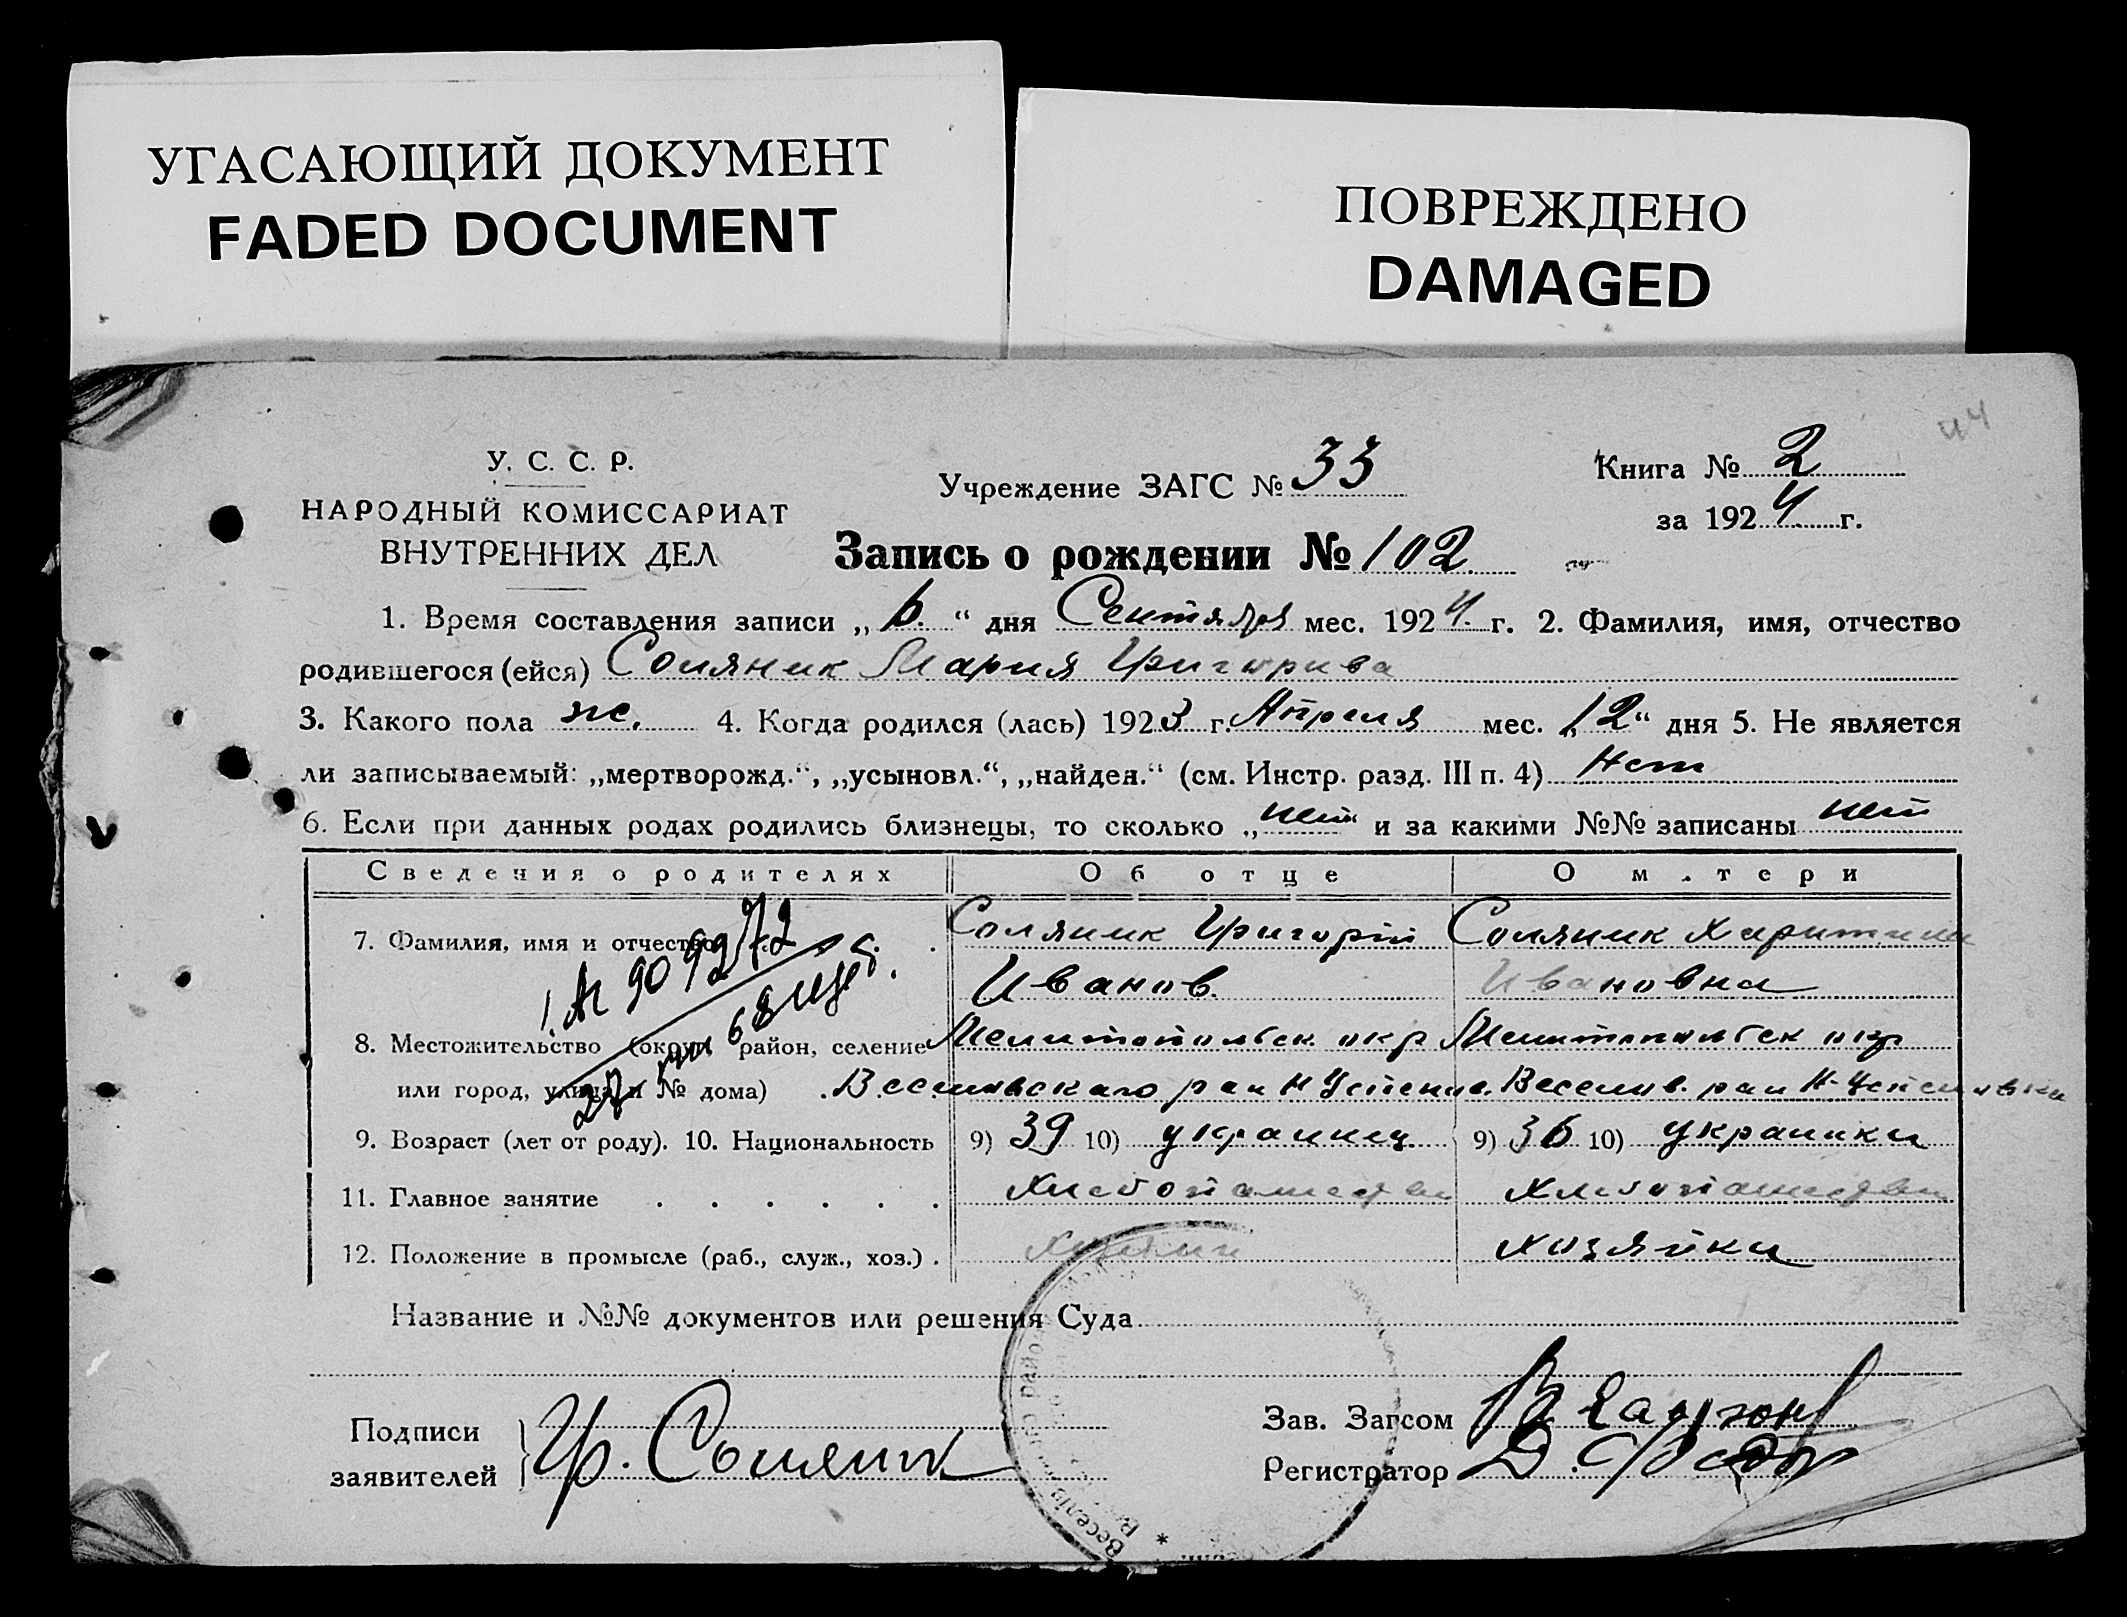 УГАСАЮЩИЙ ДОКУМЕНТ
FADED DOCUMENT
ПОВРЕЖДЕНО
DAMAGED
44
У. С. С. Р.
НАРОДНЫЙ КОМИССАРИАТ
ВНУТРЕННИХ ДЕЛ
Учреждение ЗАГС № 33
Книга № 2
за 1924 г.
Запись о рождении № 102
1. Время составления записи „6.“ дня Сентября мес. 1924 г. 2. Фамилия, имя, отчество
родившегося (ейся) Соляник Мария Григорива
3. Какого пола ж. 4. Когда родился (лась) 1923 г. Апреля мес. „12“ дня 5. Не является
ли записываемый: „мертворожд.“, „усыновл.“, „найден.“ (см. Инстр. разд. III п. 4) Нет
6. Если при данных родах родились близнецы, то сколько „нет“ и за какими №№ записаны нет
Сведения о родителях Об отце О матери
7. Фамилия, имя и отчество Соляник Григорій Соляник Харитина
Иванов. Ивановна
8. Местожительство (округ, район, селение Мелитопольск окр Мелитопольск окр
или город, улица и № дома) Веселивскаго рай Н Успенив. Веселив. рай Н-Успенивка
9. Возраст (лет от роду). 10. Национальность 9) 39 10) украинец 9) 36 10) украинка
11. Главное занятие Хлебопашество Хлебопашество
12. Положение в промысле (раб., служ., хоз.) хозяин хозяйка
Название и №№ документов или решения Суда
Подписи
заявителей
Гр. Соляник
Зав. Загсом
Регистратор